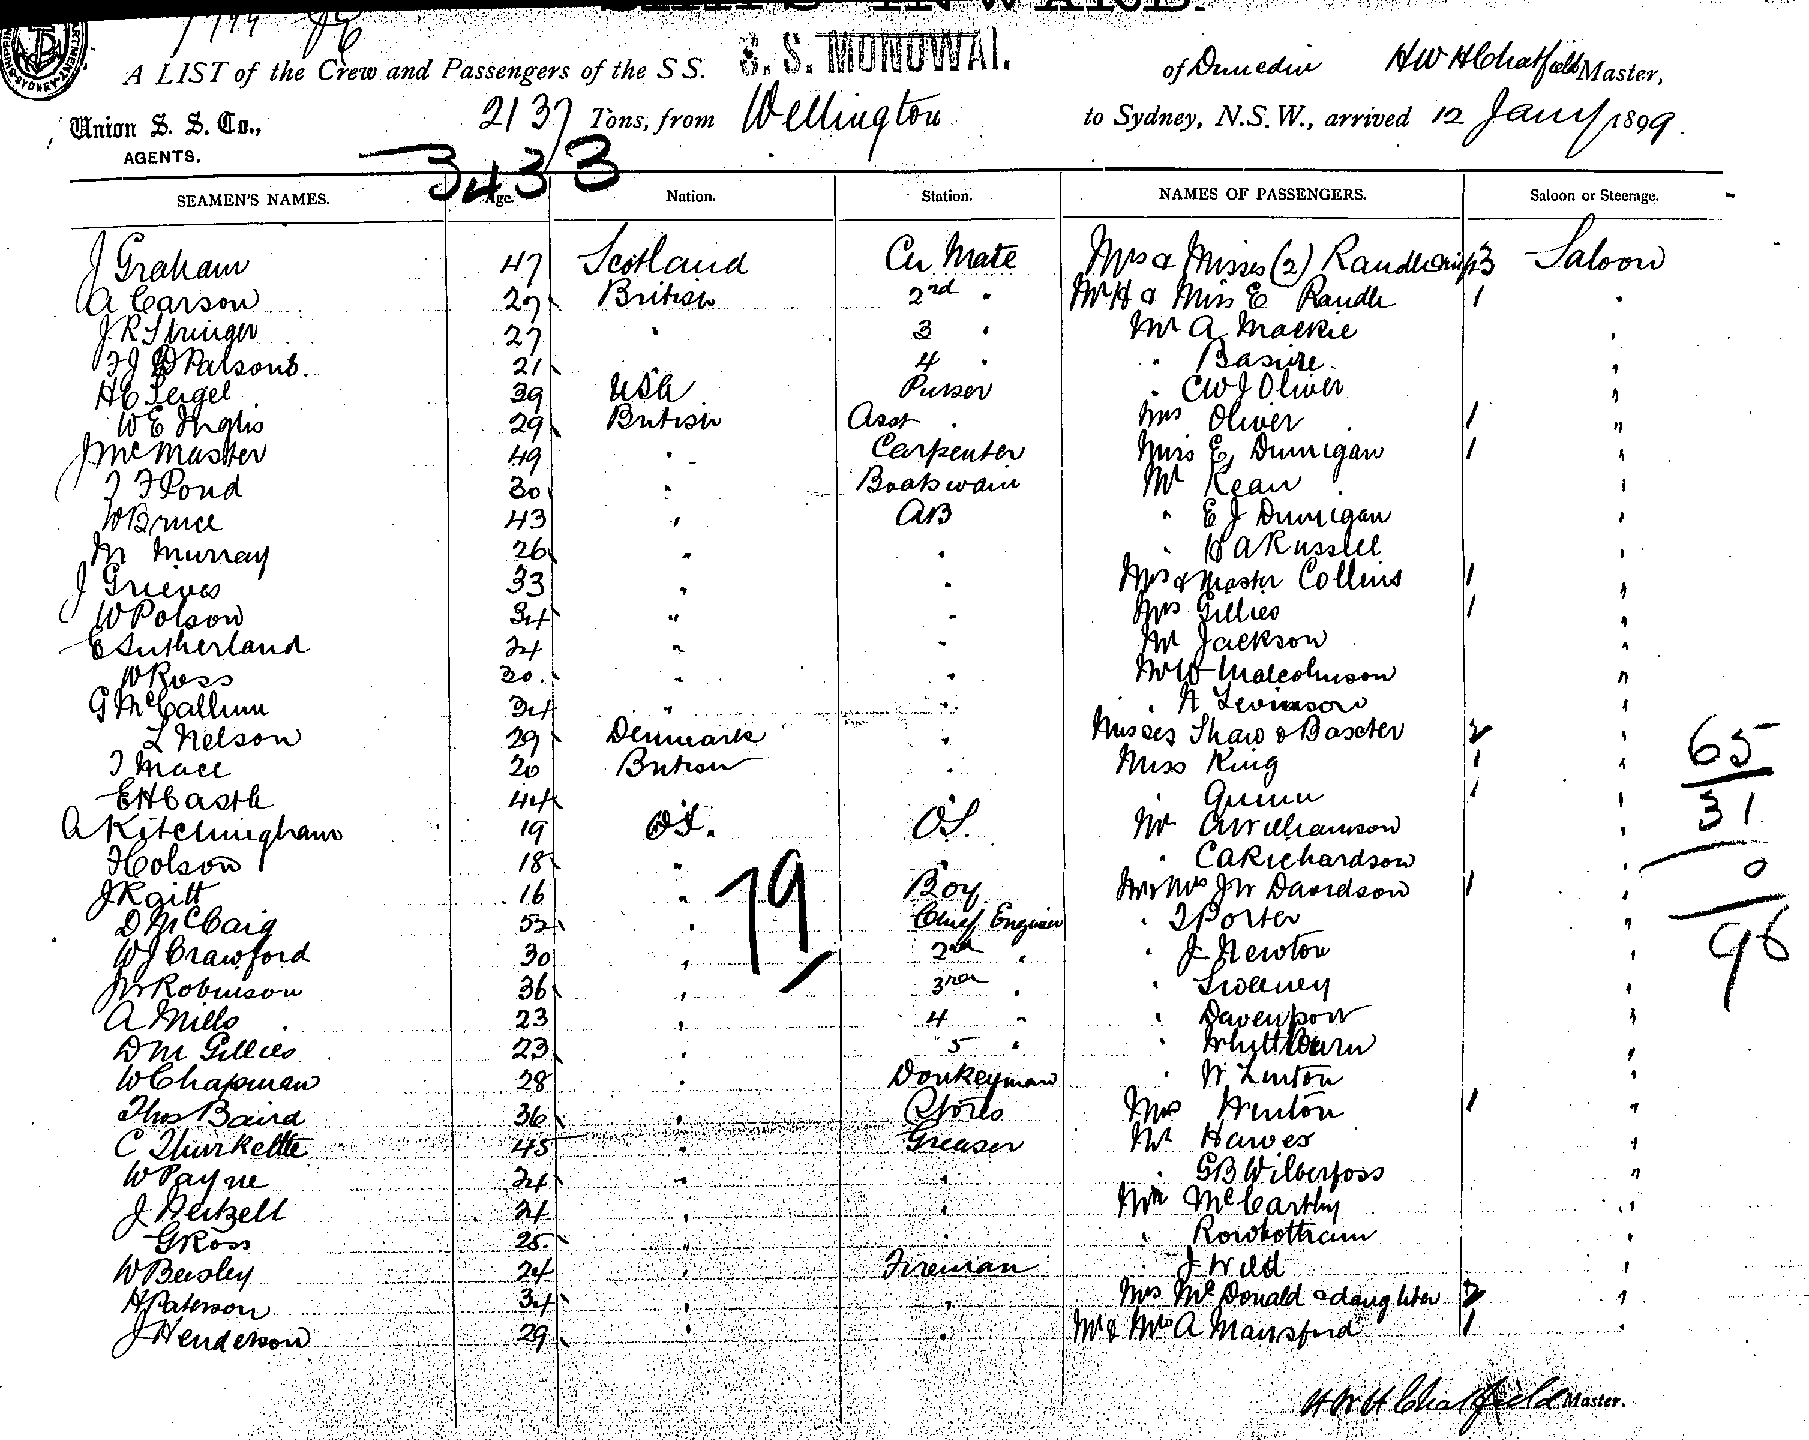 SHIPS INWARD.
A LIST of the Crew and Passengers of the SS. S. S. MONOWAI. of Dunedin HWHChatfield Master,
Union S. S. Co., AGENTS. 2137 Tons, from Wellington to Sydney, N.S.W., arrived 12 Jany 1899.
3433
SEAMEN'S NAMES. Age. Nation. Station. NAMES OF PASSENGERS. Saloon or Steerage.
J Graham 47 Scotland Ch Mate Mrs & Misses (2) 3 Saloon
A Carson 27 British 2nd " Mr H & Miss E Randle 1 "
J R Stringer 27 " 3 " Mr A Mackie "
F J D Parsons. 21 " 4 " " Basire "
H C Seigel 39 USA Purser " CWJ Oliver "
W E Inglis 29 British Asst " Mrs Oliver 1 "
J McMaster 49 " Carpenter Miss E Dunnigan 1 "
F Pond 30 " Boatswain Mr Kean "
W Bruce 43 " AB " E J Dunnigan "
M Murray 26 " " " H A Russell "
J Grieves 33 " " Mrs & Master Collins 1 "
W Polson 34 " " Mrs Gillies 1 "
E Sutherland 24 " " Mr Jackson "
W Ross 20 " " Mr W Malcolmson "
G McCallum 34 " " " Levinson "
L Nelson 29 Denmark " Misses Shaw & Baxter 2 "
J Mace 20 British " Miss King 1 "
E H Castle 44 " " Quinn 1 "
A Kitchingham 19 OS. OS. Mr Williamson "
F Colson 18 " " " C A Richardson "
J R 16 " Boy Mr & Mrs J W Davidson 1 "
D McCaig 52 " Chief Engineer " J Porter "
W J Crawford 30 " 2nd " " J Newton "
J W Robinson 36 " 3rd " " Sweeney "
A Mills 23 " 4 " " Davenport "
D M Gillies 23 " 5 " "
W Chapman 28 " Donkeyman " W Linton "
Thos Baird 36 " Stores Mrs Hinton 1 "
C Thurkettle 45 " Greaser Mr Hawes "
W Payne 24 " " " G B Wilberfoss "
J 24 " " Mr McCarthy "
G Ross 25 " " " Rowbottham "
W Beesley 24 " Fireman " J Wild "
H Paterson 34 " " Mrs McDonald & daughter 2 "
J Henderson 29 " " Mr & Mrs A Mansford 1 "
79
65
31
0
96
HWHChatfield Master.